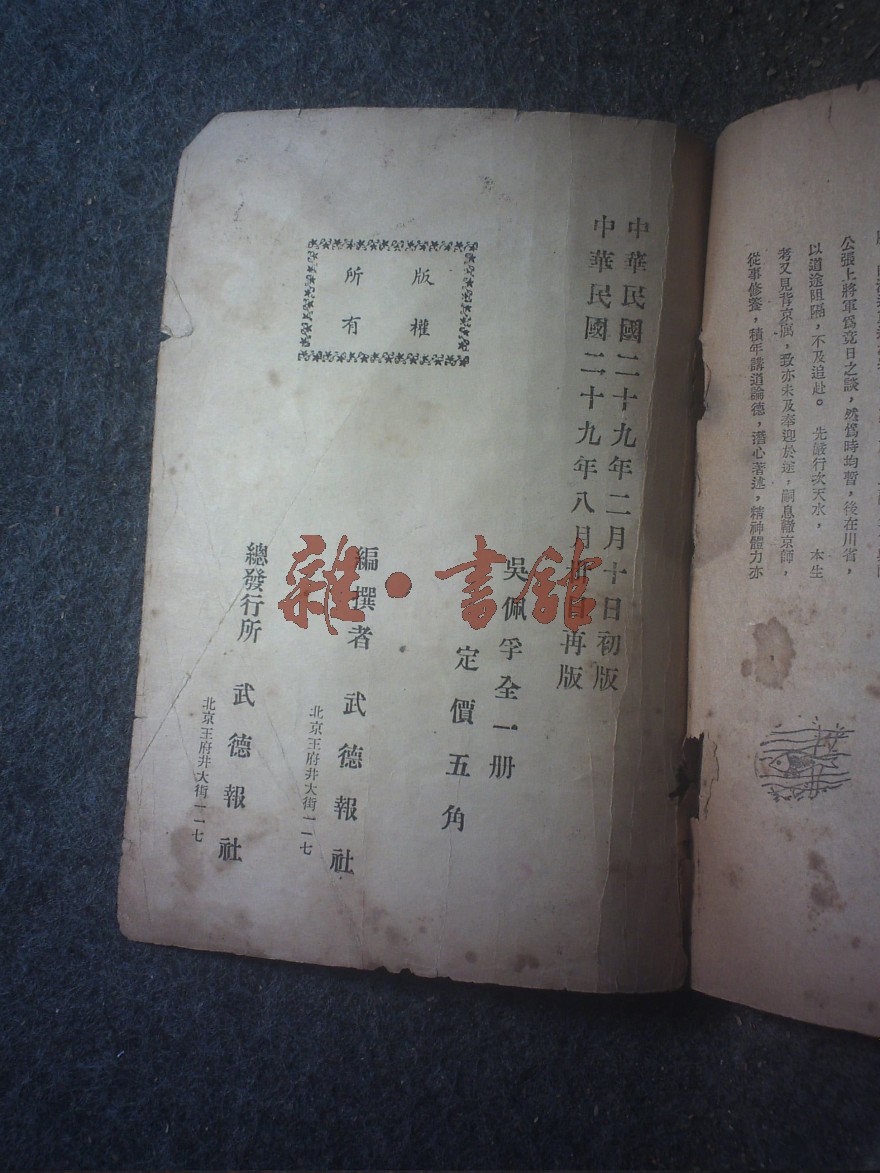 公張上將軍爲竟日之談，然爲時均暫，後在川省，
以道途阻隔，不及追赴。先嚴行次天水，本生
考又見背京寓，致亦未及奉迎於途，嗣息轍京師，
從事修養，積年講道論德，潛心著述，精神體力亦
中華民國二十九年二月十日初版
中華民國二十九年八月 日再版
吳佩孚全一册
定價五角
編撰者 武德報社
北京王府井大街一一七
總發行所 武德報社
北京王府井大街一一七
版權
所有
雜·書館